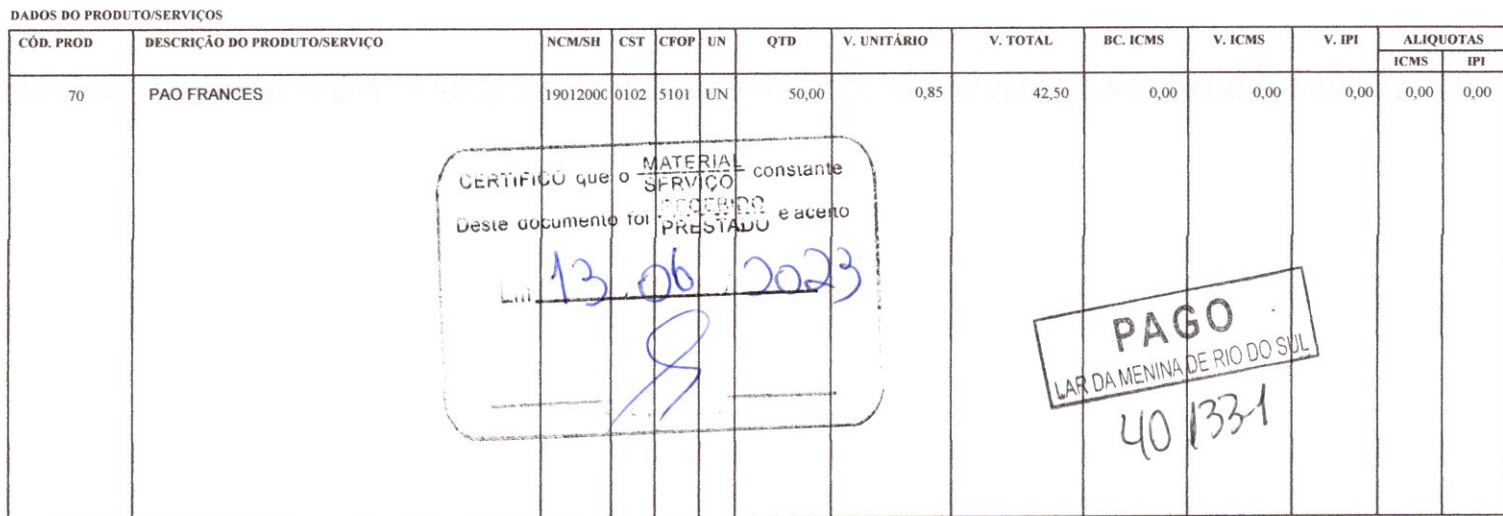 DADOS DO PRODUTO/SERVIÇOS
CÓD. PROD DESCRIÇÃO DO PRODUTO/SERVIÇO NCM/SH CST CFOP UN QTD V. UNITÁRIO V. TOTAL BC. ICMS V. ICMS V. IPI ALIQUOTAS
ICMS IPI
70 PAO FRANCES 19012000 0102 5101 UN 50,00 0,85 42,50 0,00 0,00 0,00 0,00 0,00
CERTIFICO que o MATERIAL constante
SERVIÇO
Deste documento foi RECEBIDO e aceito
PRESTADO
Em 13 / 06 / 2023
PAGO
LAR DA MENINA DE RIO DO SUL
40 1331